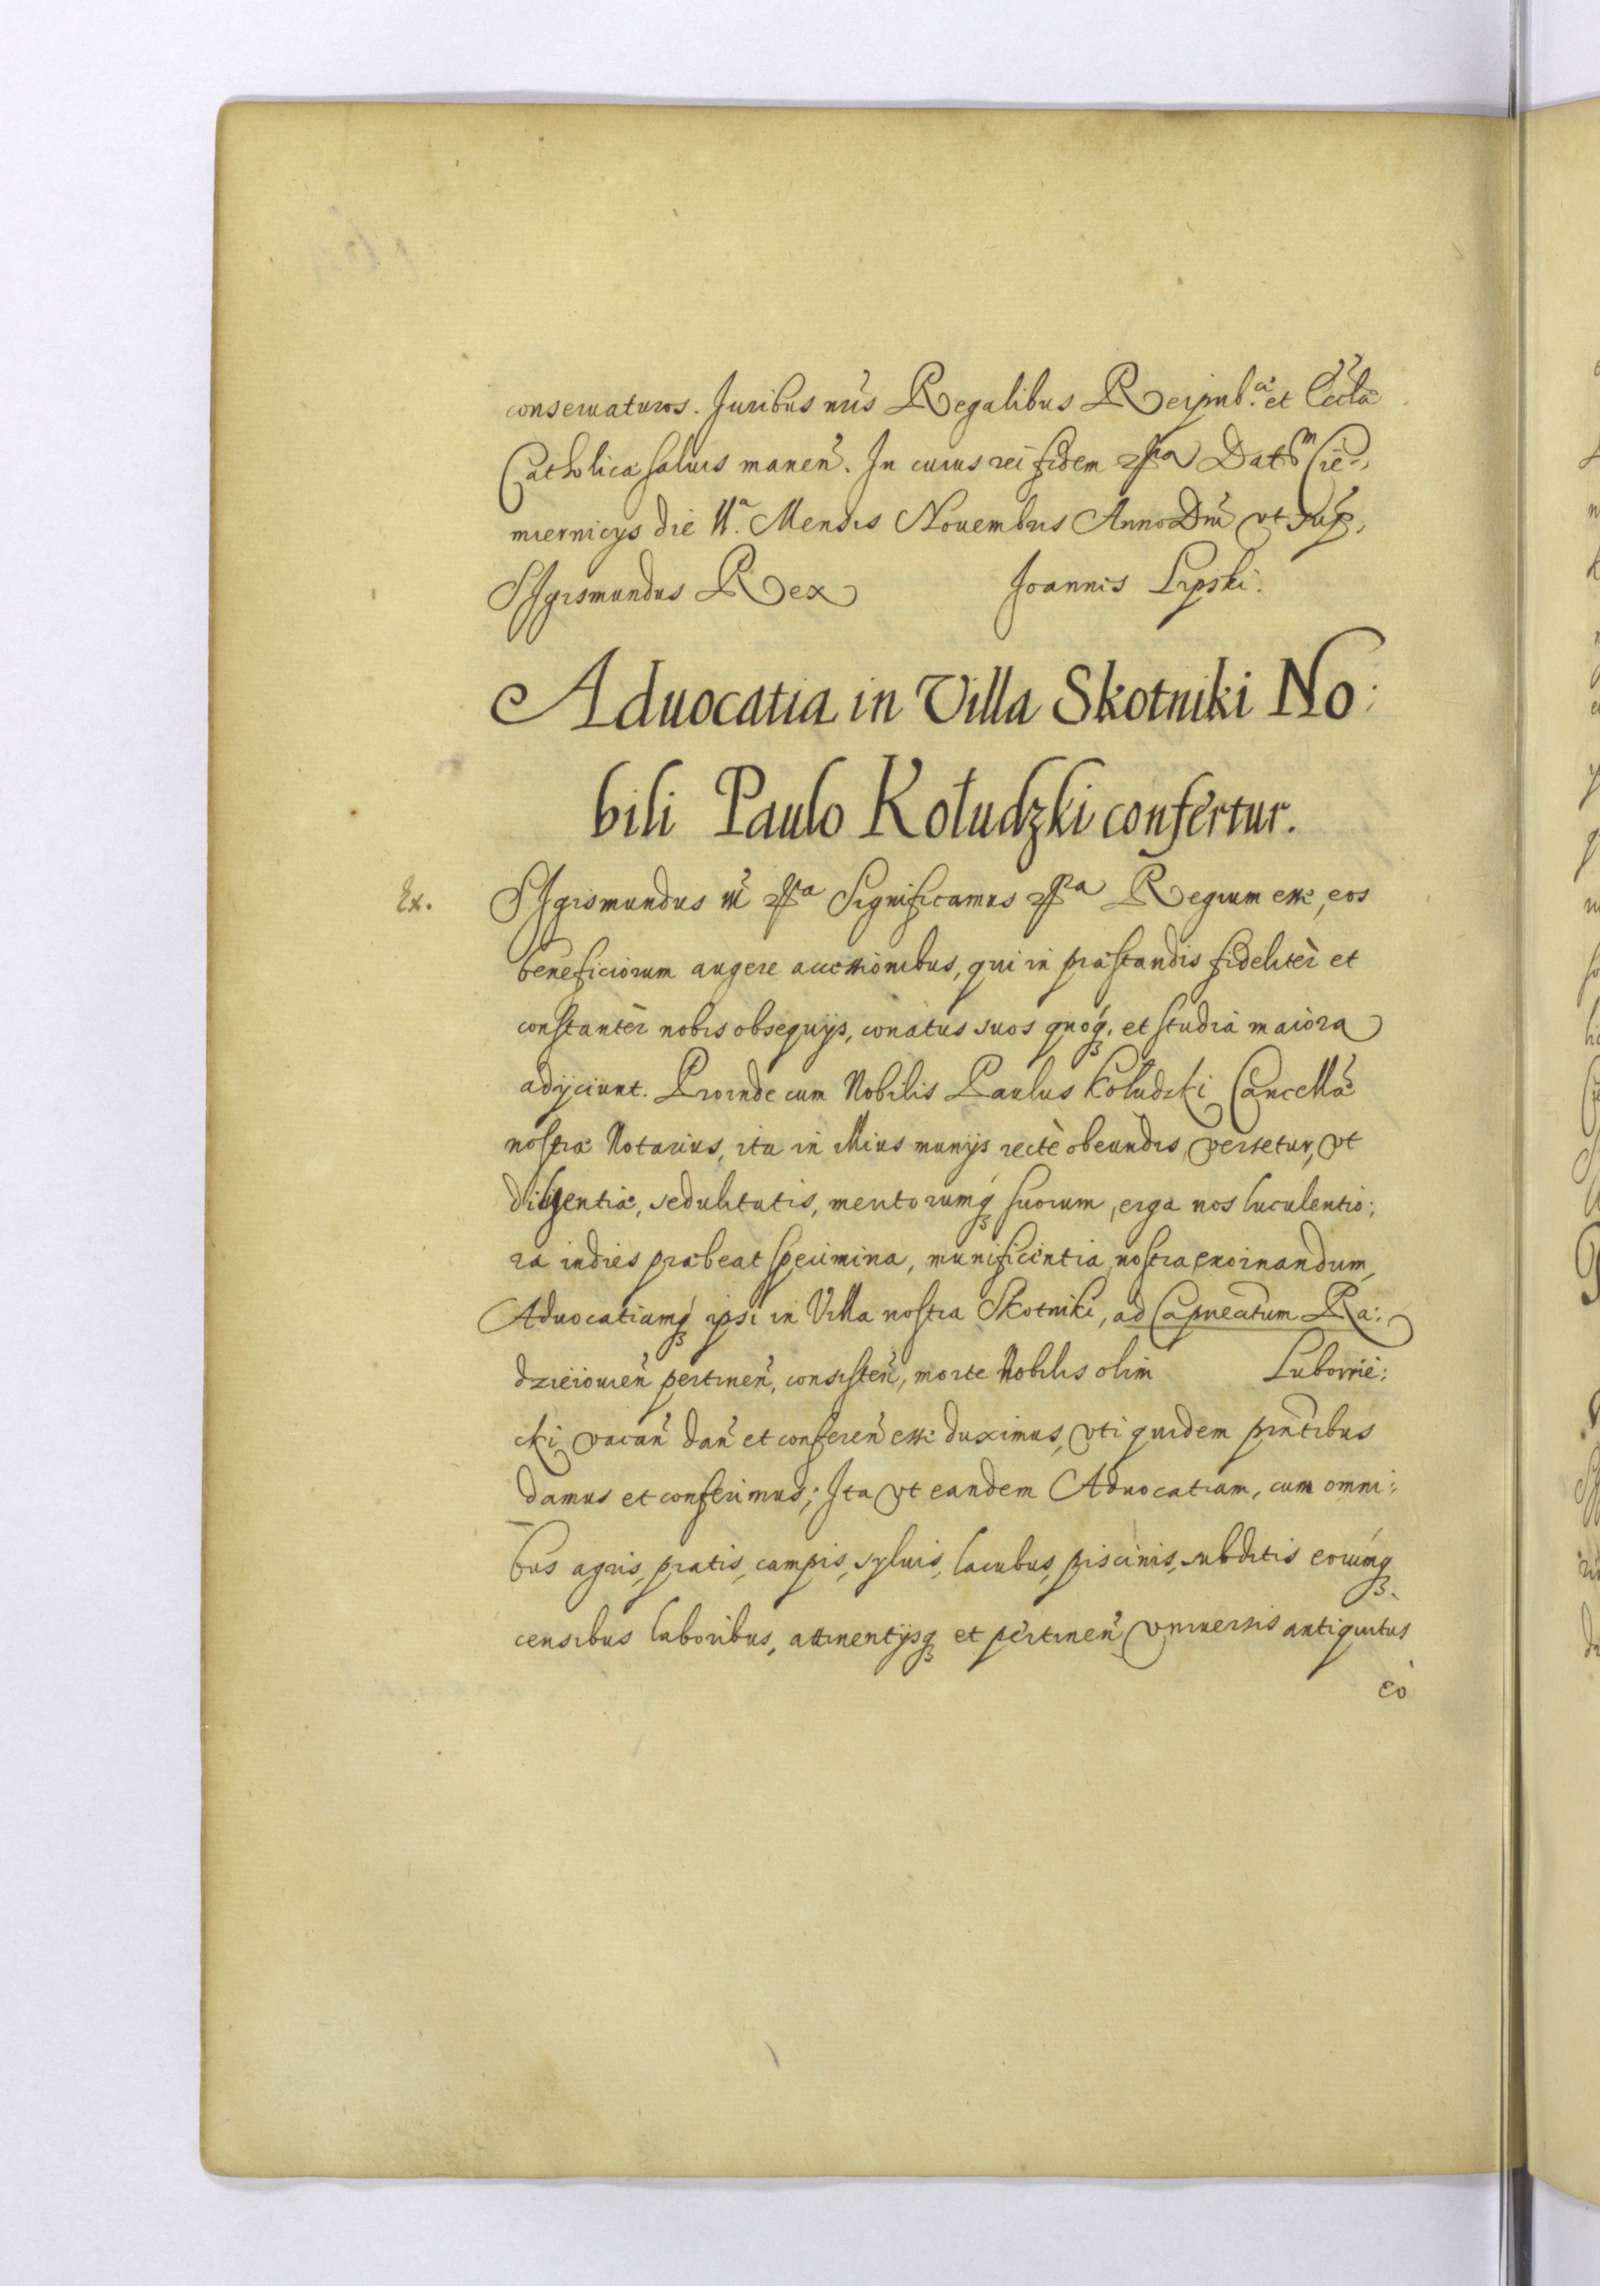 conseruaturos. Juribus nr̄is Regalibus Reipub.ᶜᵃᵉ et Eccl̃æ
Catholicæ saluis manen̄. In cuius rei fidem Dat͠m Cie-
miernicys die 11.ᵃ Mensis Nouembris Anno Dn̄i vt sup,
SIgismundus Rex Joannis Lipski.
Aduocatia in Villa Skotniki No:
bili Paulo Kołudzki confertur.
Ex. SIgismundus Significamus Regium esse, eos
beneficiorum augere accessionibus, qui in præstandis fidelitèr et
constantèr nobis obsequys, conatus suos quoq́;, et studia maiora
adyciunt. Proinde cum Nobilis Paulus Kołudzki Cancellã
nostræ Notarius, ita in illius munijs rectè obeundis versetur, vt
diligentiæ, sedulitatis, meritorumq́; suorum, erga nos luculentio:
ra indies præbeat specimina, munificentia nostra exornandum,
Aduocatiamq́; ipsi in Villa nostra Skotniki, ad Capneatum Ra:
dzieiouien̄ pertinen̄, consisten̄, morte Nobilis olim Lubowie:
cki vacan̄ dan̄ et conferen̄ esse duximus, vti quidem pn̄tibus
damus et conferimus; Ita vt eandem Aduocatiam, cum omni:
bus agris, pratis, campis, syluis, lacubus, piscinis, subditis eorumq́;
censibus laboribus, attinentijsq; et pertinen̄ vniuersis antiquitus
eò